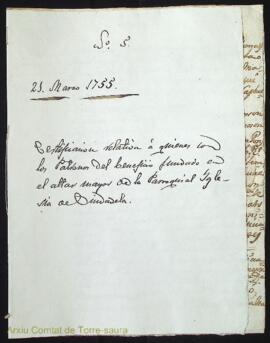 Nº. 5.
21. Marzo 1755.
Certificacion relativa á quienes son
los Patronos del beneficio fundado en
el altar mayor de la Parroquial Igle-
sia de Ciudadela.
Arxiu Comtat de Torre-saura